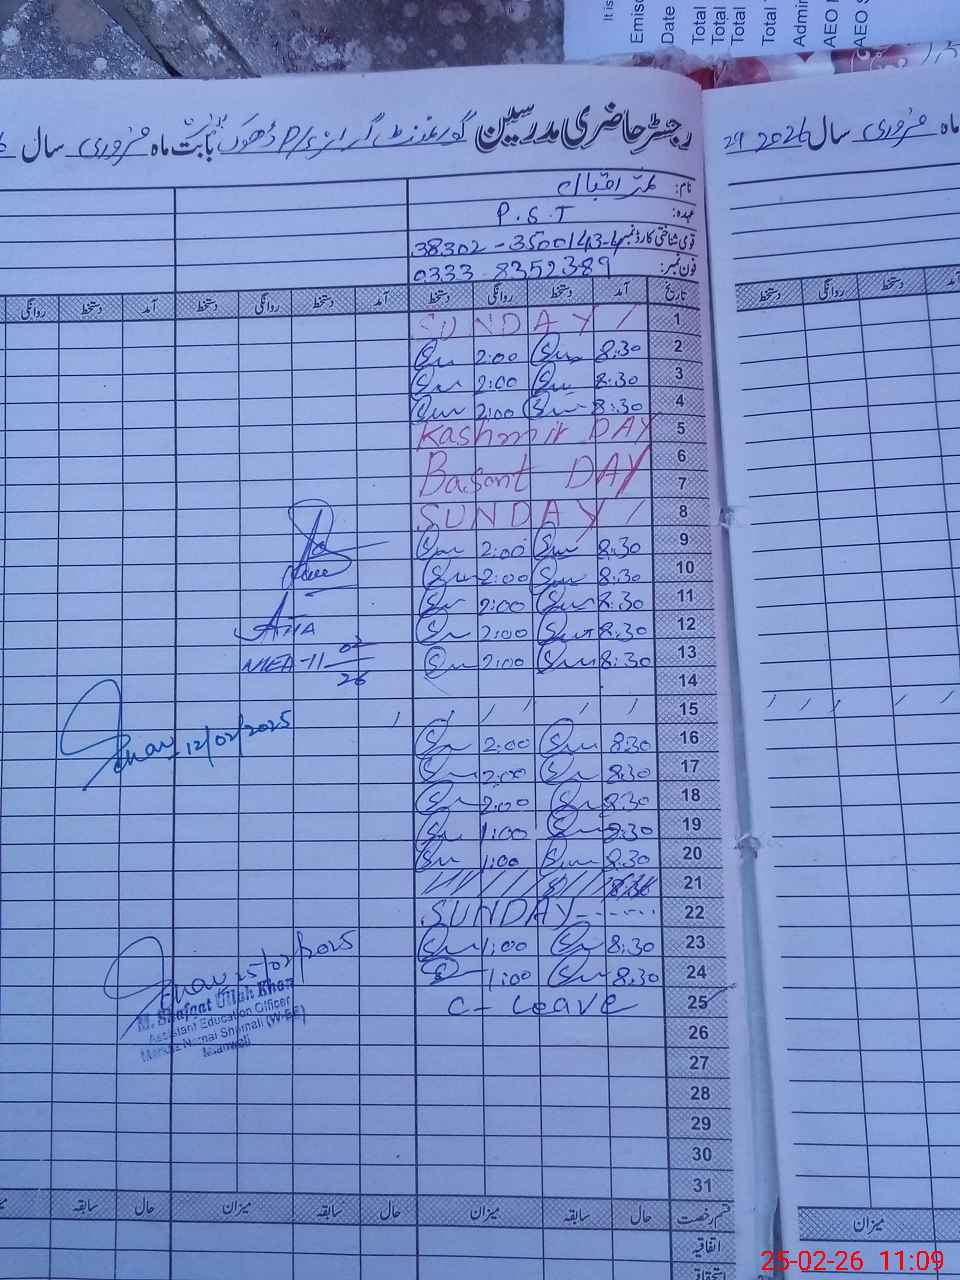 It is
Emisc
Date
Total
Total
Total
Total
Admin
AEO
AEO S
رجسٹر حاضری مدرسین گورنمنٹ گرلز P/S ڈھوک بابت ماہ فروری سال
ماہ فروری سال 2026 29
نام: اقبال
عہدہ: P.S.T
قومی شناختی کارڈ نمبر 38302-3500143-4
فون نمبر: 0333-8352389
تاریخ آمد دستخط روانگی دستخط آمد دستخط روانگی دستخط آمد دستخط روانگی
آمد دستخط روانگی دستخط
1 SUNDAY
2 8:30 2:00
3 8:30 2:00
4 8:30 2:00
5 Kashmir DAY
6
7 Basant DAY
8 SUNDAY
9 8:30 2:00
10 8:30 2:00
11 8:30 2:00
12 8:30 2:00
13 8:30 2:00
14
15
16 8:30 2:00
17 8:30 2:00
18 8:30 2:00
19 8:30 1:00
20 8:30 1:00
21 8:30
22 SUNDAY
23 8:30 1:00
24 8:30 1:00
25 C-Leave
26
27
28
29
30
31
-11 02
26
12/02/2025
25/02/2025
M. Shafaat Ullah Khan
Assistant Education Officer
Markaz Namal Shomali (W-EE)
Mianwali
قسم رخصت حال سابقہ میزان حال سابقہ میزان حال سابقہ
میزان
اتفاقیہ
استحقاقیہ
25-02-26 11:09